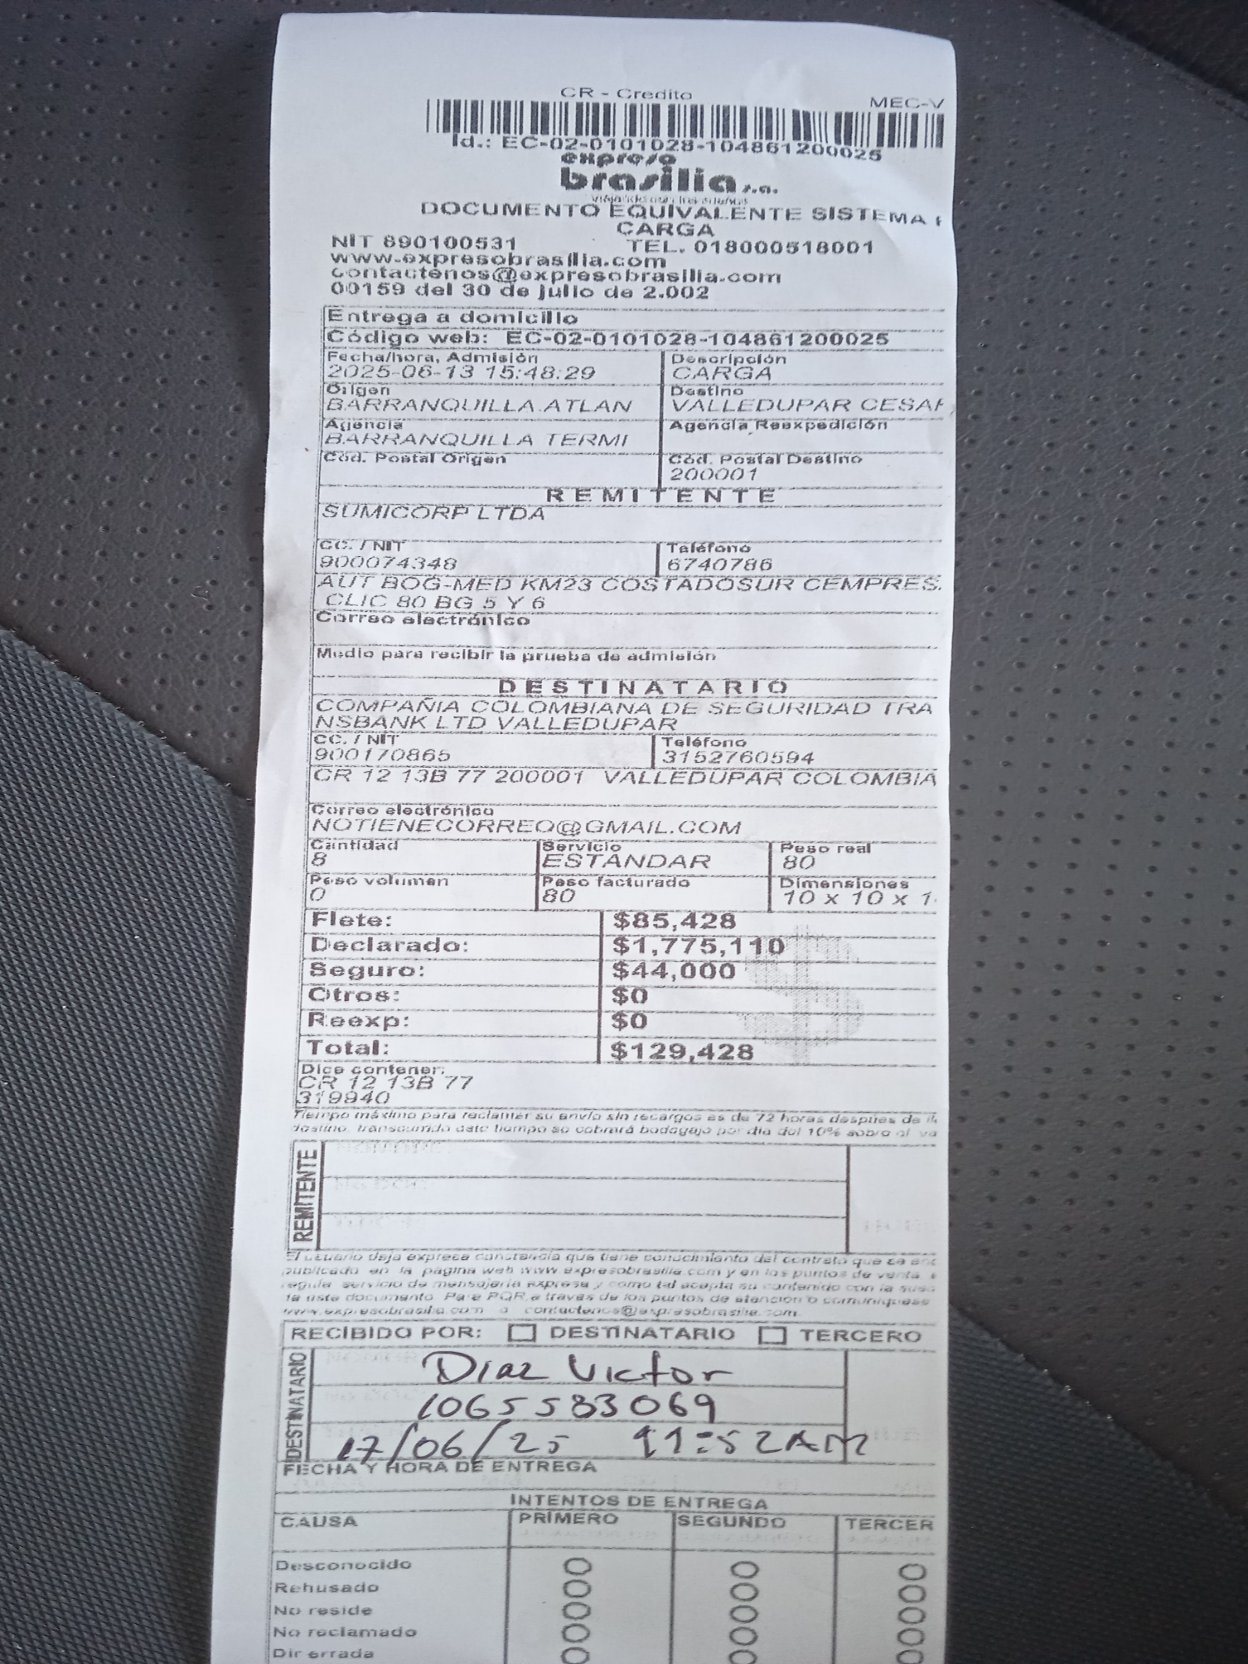 CR - Credito
MEC-V
Id.: EC-02-0101028-104861200025
expreso
brasilia s.a.
DOCUMENTO EQUIVALENTE SISTEMA
CARGA
NIT 890100531 TEL. 018000518001
www.expresobrasilia.com
contactenos@expresobrasilia.com
00159 del 30 de julio de 2.002
Entrega a domicilio
Código web: EC-02-0101028-104861200025
Fecha/hora, Admisión Descripción
2025-06-13 15:48:29 CARGA
Origen Destino
BARRANQUILLA ATLAN VALLEDUPAR CESAR
Agencia Agencia Reexpedición
BARRANQUILLA TERMI
Cód. Postal Origen Cód. Postal Destino
200001
REMITENTE
SUMICORP LTDA
CC. / NIT Teléfono
900074348 6740786
AUT BOG-MED KM23 COSTADOSUR CEMPRES.
CLIC 80 BG 5 Y 6
Correo electrónico
Medio para recibir la prueba de admisión
DESTINATARIO
COMPAÑIA COLOMBIANA DE SEGURIDAD TRA
NSBANK LTD VALLEDUPAR
CC. / NIT Teléfono
900170865 3152760594
CR 12 13B 77 200001 VALLEDUPAR COLOMBIA
Correo electrónico
NOTIENECORREO@GMAIL.COM
Cantidad Servicio Peso real
8 ESTANDAR 80
Peso volumen Peso facturado Dimensiones
0 80 10 x 10 x 1
Flete: $85,428
Declarado: $1,775,110
Seguro: $44,000
Otros: $0
Reexp: $0
Total: $129,428
Dice contener:
CR 12 13B 77
319940
Tiempo máximo para reclamar su envío sin recargos es de 72 horas después de
destino, transcurrido este tiempo se cobrará bodegaje por día del 10% sobre el va
REMITENTE
El usuario deja expresa constancia que tiene conocimiento del contrato que se enc
publicado en la pagina web www expresobrasilia com y en los puntos de venta
regula servicio de mensajería expresa y como tal acepta su contenido con la susc
te este documento. Para PQR a través de los puntos de atención o comuníquese
www.expresobrasilia.com o contactenos@expresobrasilia.com.
RECIBIDO POR: DESTINATARIO TERCERO
DESTINATARIO
Diaz Victor
1065583069
17/06/25 11:52AM
FECHA Y HORA DE ENTREGA
INTENTOS DE ENTREGA
CAUSA PRIMERO SEGUNDO TERCER
Desconocido
Rehusado
No reside
No reclamado
Dir errada